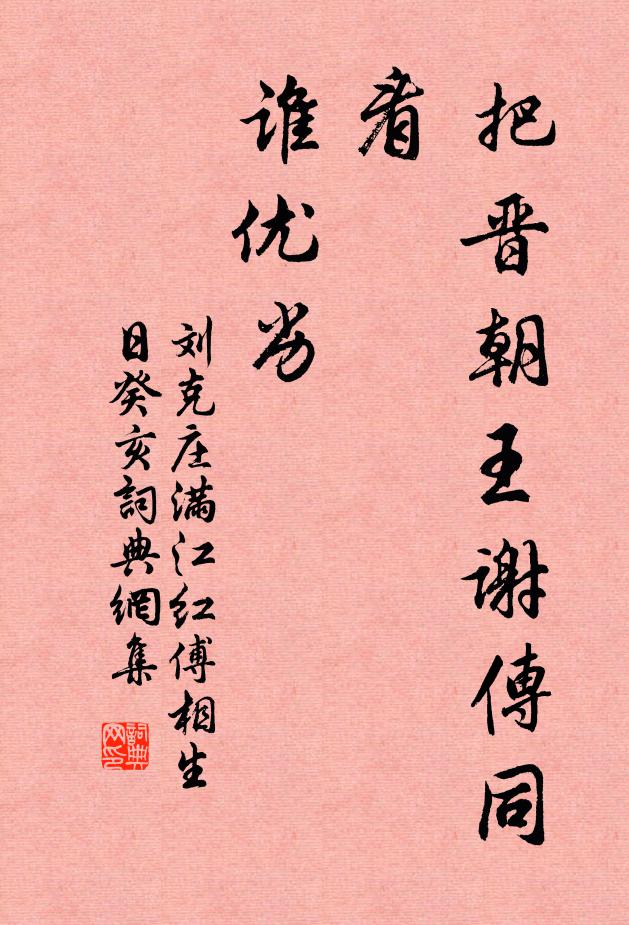 把晋朝王谢傳同
看
谁优劣
刘克庄满江红傅相生
日癸亥詞典網集
詞典
网印